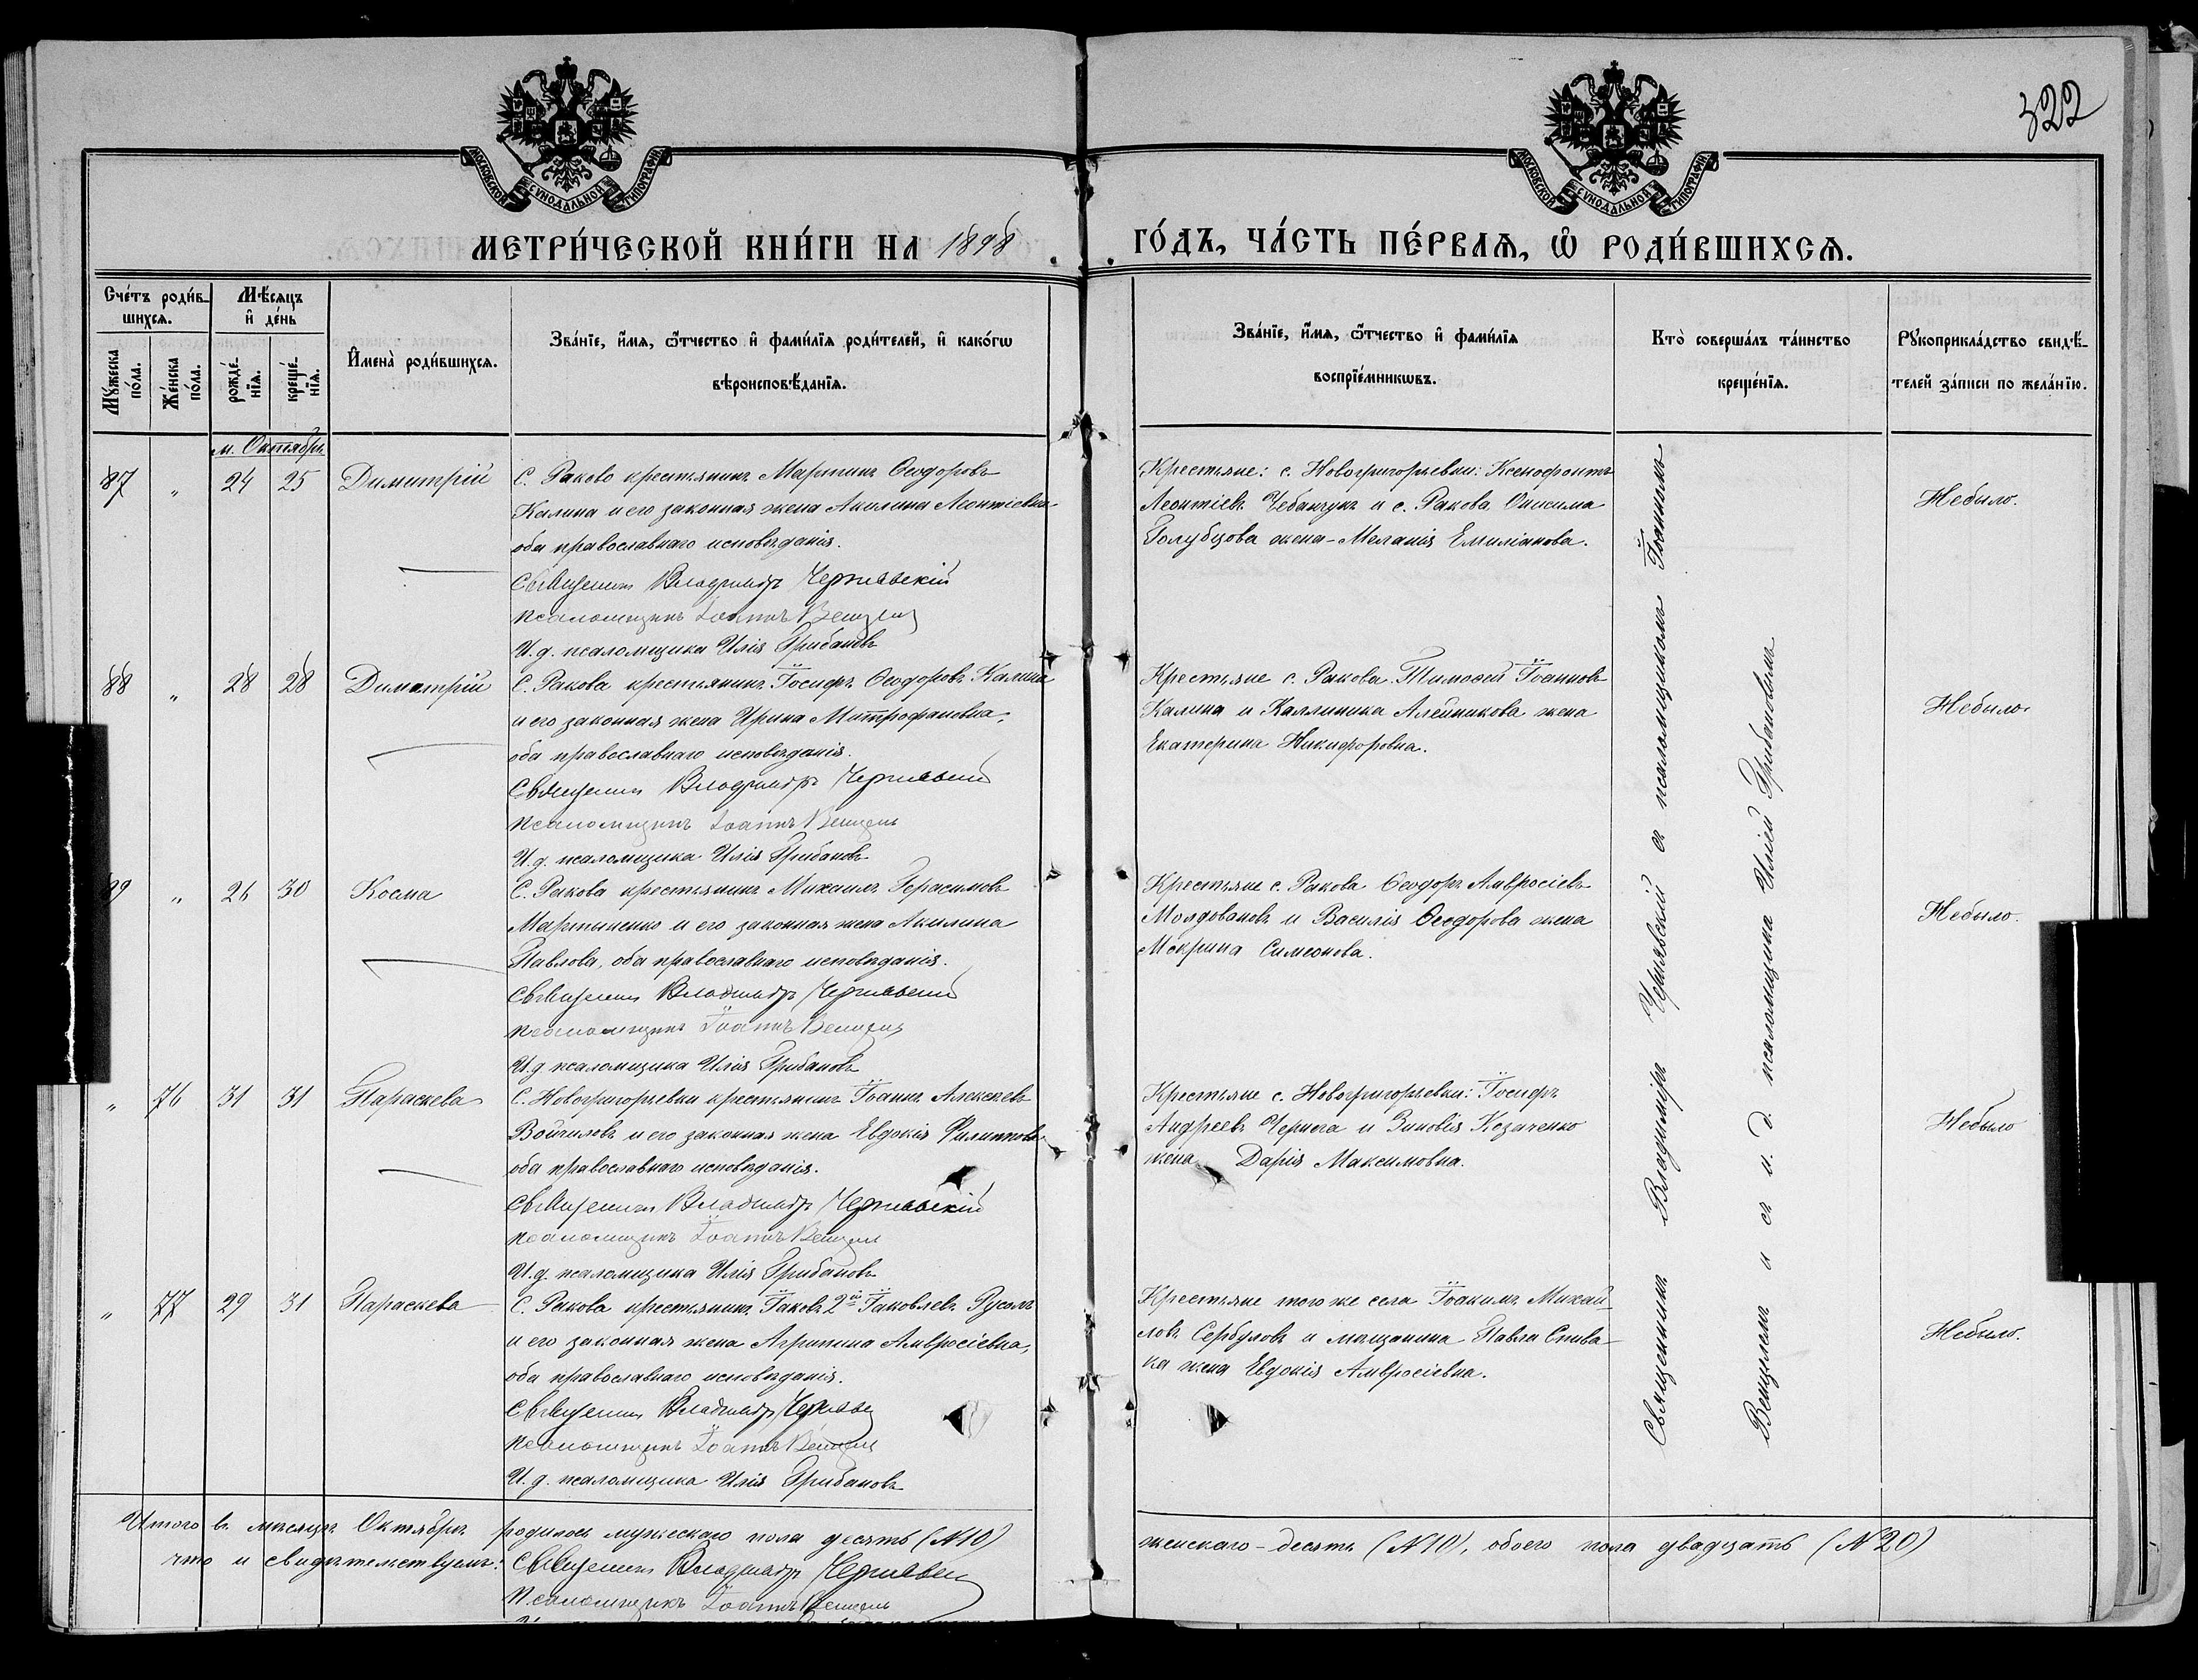 322
МОСКОВСКОЙ СѴНОДАЛЬНОЙ ТИПОГРАФІИ
МОСКОВСКОЙ СѴНОДАЛЬНОЙ ТИПОГРАФІИ
МЕТРИ́ЧЕСКОЙ КНИ́ГИ НА 1898 ГО́ДЪ, ЧА́СТЬ ПЕ́РВАЯ, Ѡ РОДИ́ВШИХСЯ.
Сче́тъ роди́в-
шихся.
Мѣ́сяцъ
и де́нь
Мꙋ́жеска
по́ла.
Же́нска
по́ла.
рожде́-
нїя.
креще́-
нїя.
Имена̀ роди́вшихся.
Зва́нїе, и́мя, ѻ́тчество и фами́лїя роди́телей, и како́гѡ
вѣроисповѣ́данїя.
Зва́нїе, и́мя, ѻ́тчество и фами́лїя
воспрїе́мникѡвъ.
Кто̀ соверша́лъ та́инство
креще́нїя.
Рꙋкоприкла́дство свидѣ́-
телей за́писи по жела́нїю.
м. Октябрь
87 " 24 25 Димитрій
С. Раково крестьянинъ Мартинъ Ѳеодоровъ
Калина и его законная жена Акилина Леонтіевна
оба православнаго исповѣданія.
Священникъ Владиміръ Чернявскій
псаломщикъ Іоаннъ Венцель
И. д. псаломщика Илія Грибановъ
Крестьяне: с. Новогригорьевки: Ксенофонтъ
Леонтіевъ Чебанчукъ и с. Ракова Онисима
Голубцова жена - Меланія Емиліанова.
Небыло.
88 " 28 28 Димитрій
С. Ракова крестьянинъ Іосифъ Ѳеодоровъ Калина
и его законная жена Ирина Митрофановна,
оба православнаго исповѣданія.
Священникъ Владиміръ Чернявскій
псаломщикъ Іоаннъ Венцель
И. д. псаломщика Илія Грибановъ
Крестьяне с. Ракова Тимоѳей Іоанновъ
Калина и Каллиника Алейникова жена
Екатерина Никифоровна.
Небыло.
" 26 30 Косма
С. Ракова крестьянинъ Михаилъ Герасимовъ
Мартыненко и его законная жена Акилина
Павлова, оба православнаго исповѣданія.
Священникъ Владиміръ Чернявскій
псаломщикъ Іоаннъ Венцель
И. д. псаломщика Илія Грибановъ
Крестьяне с. Ракова Ѳеодоръ Амвросіевъ
Молдовановъ и Василія Ѳеодорова жена
Мокрина Симеонова.
Небыло.
" 76 31 31 Параскева
С. Новогригорьевки крестьянинъ Іоаннъ Алексѣевъ
Войчиловъ и его законная жена Евдокія Филиппова
оба православнаго исповѣданія.
Священникъ Владиміръ Чернявскій
псаломщикъ Іоаннъ Венцель
И. д. псаломщика Илія Грибановъ
Крестьяне с. Новогригорьевки: Іосифъ
Андреевъ Чернега и Зиновія Козаченко
жена Дарія Максимовна.
Небыло
" 77 29 31 Параскева
С. Ракова крестьянинъ Іаковъ 2й Іаковлевъ Русолъ
и его законная жена Агрипина Амвросіевна,
оба православнаго исповѣданія.
Священникъ Владиміръ Чернявскій
псаломщикъ Іоаннъ Венцель
И. д. псаломщика Илія Грибановъ
Крестьяне того же села Іоакимъ Михай-
ловъ Сербуловъ и мѣщанина Павла Спива-
ка жена Евдокія Амвросіевна.
Небыло.
Священникъ Владиміръ Чернявскій съ псаломщикомъ Іоанномъ
Венцелемъ и съ и. д. псаломщика Иліей Грибановымъ
Итого въ мѣсяцѣ Октябрѣ родилось мужескаго пола десять (№10) женскаго - десять (№10), обоего пола двадцать (№20)
что и свидѣтельствуемъ: Священникъ Владиміръ Чернявскій
Псаломщикъ Іоаннъ Венцель